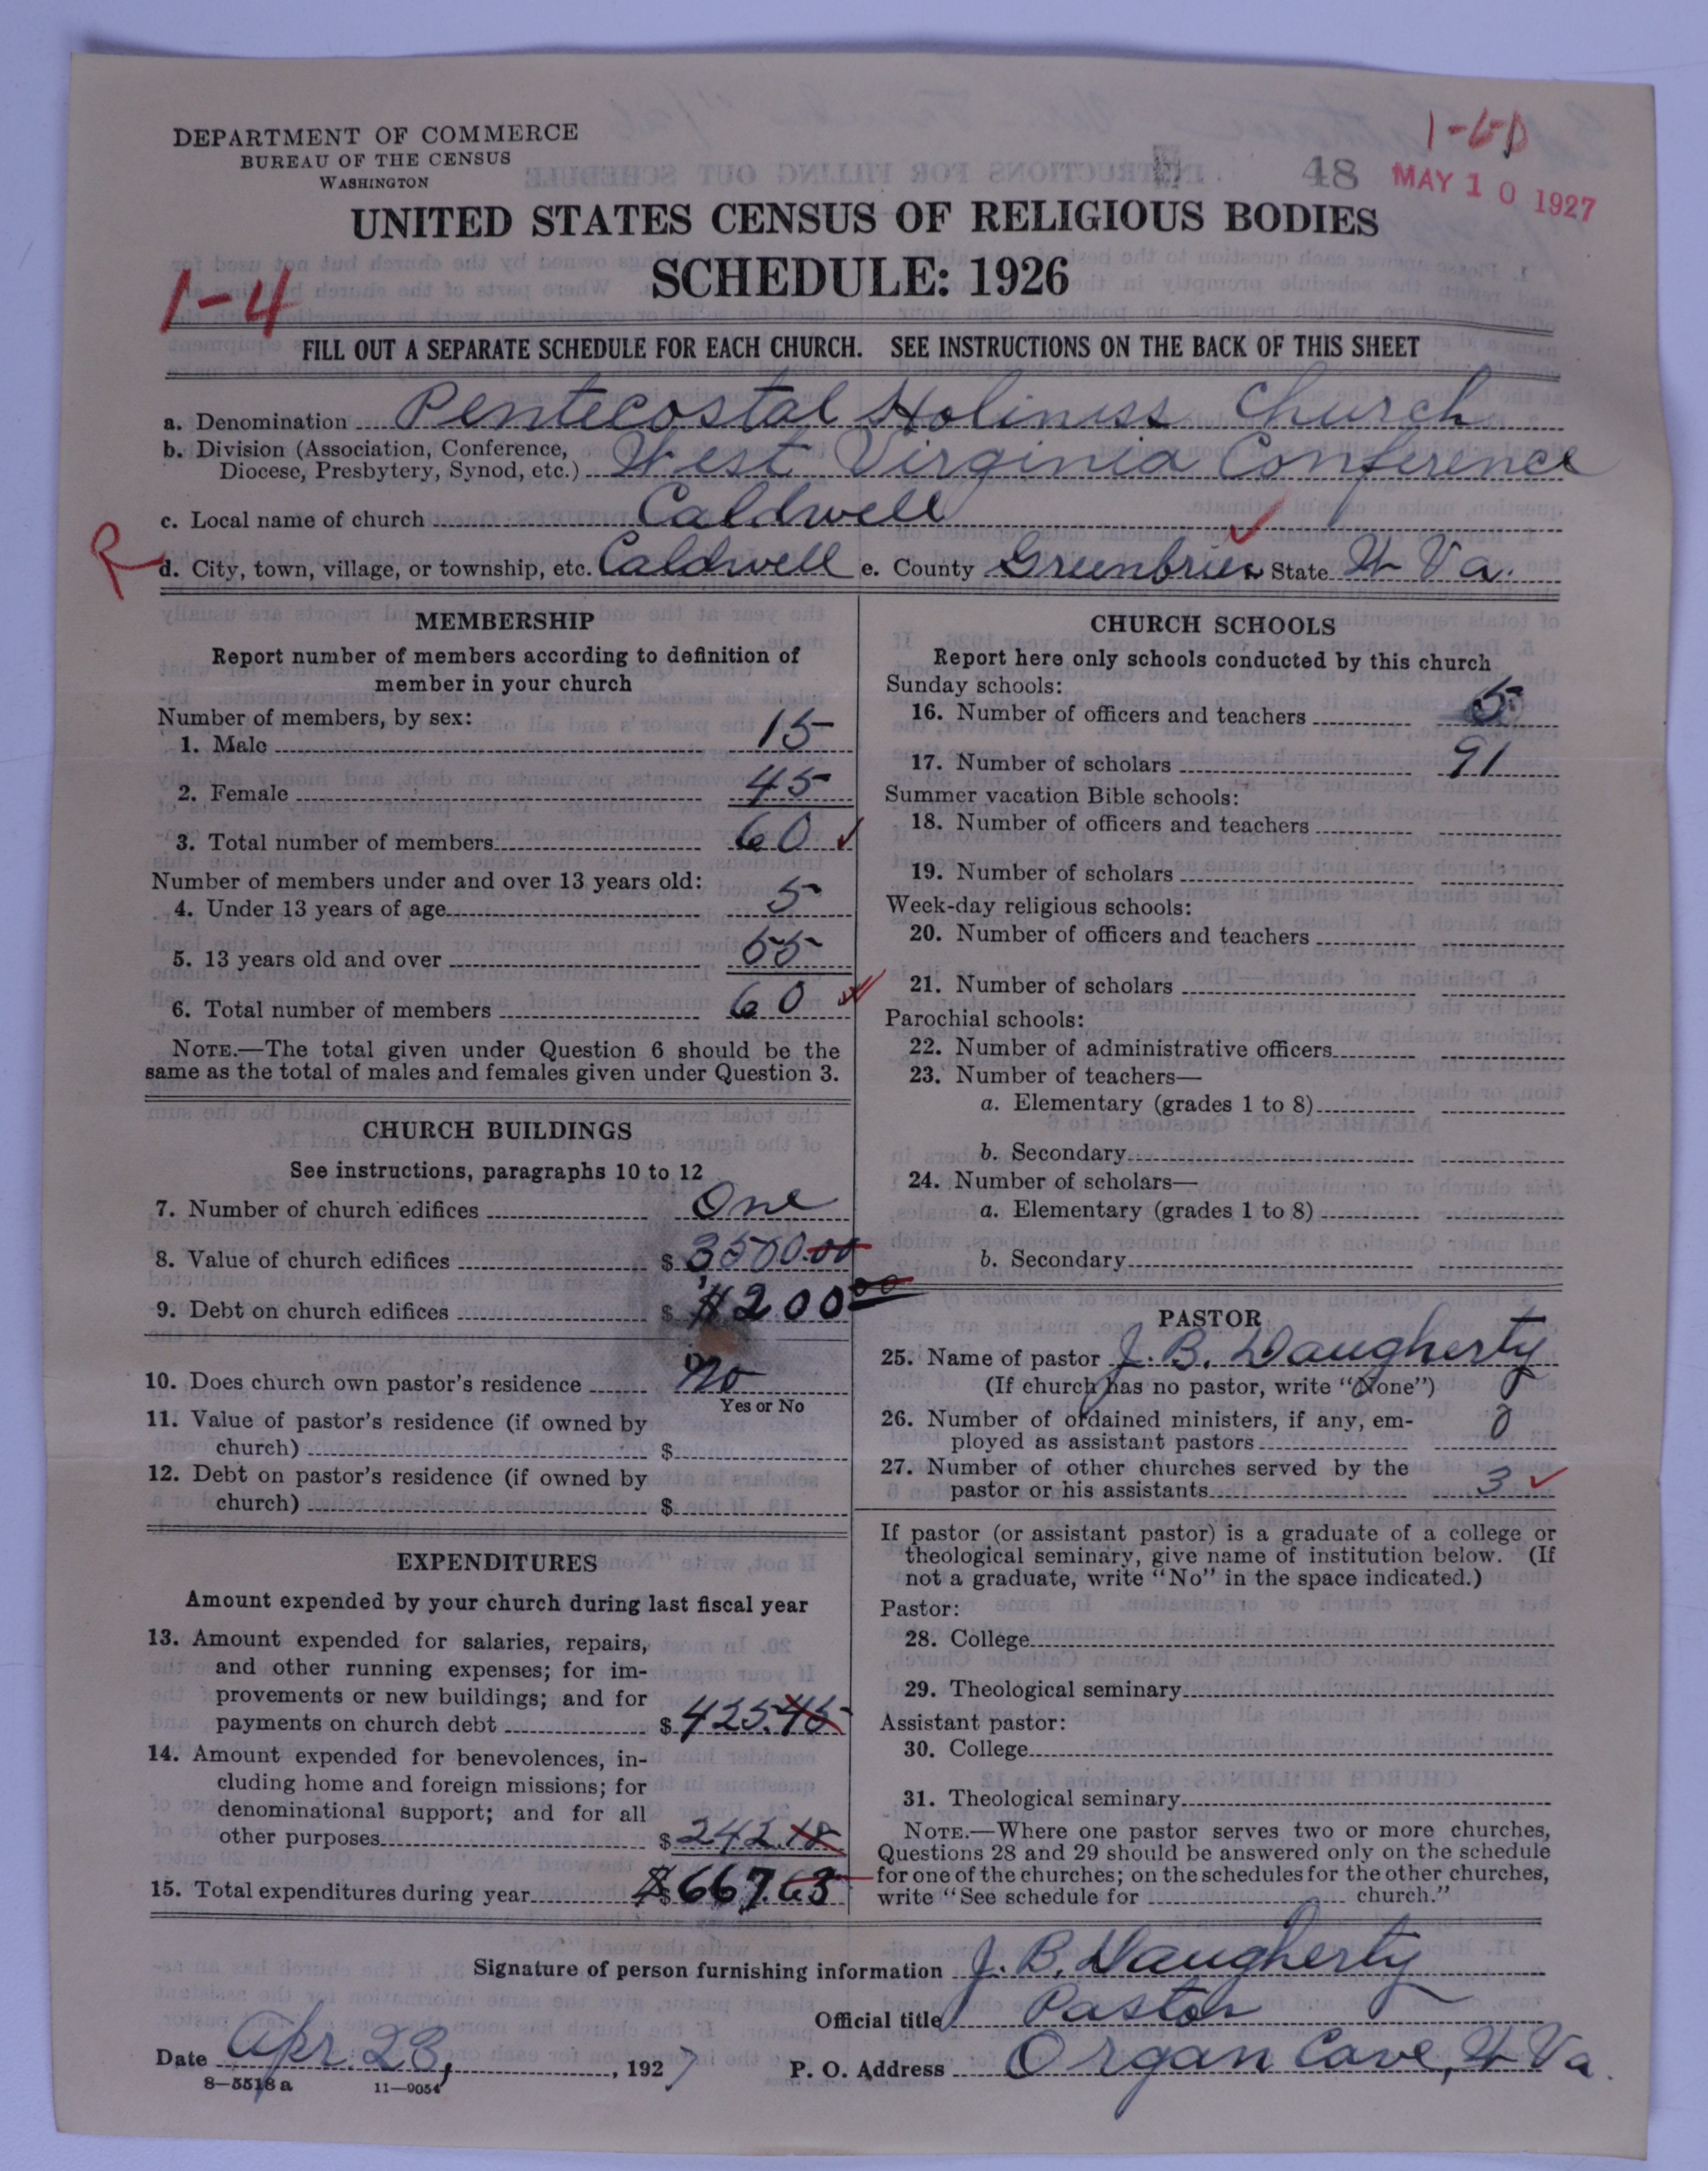 DEPARTMENT OF COMMERCE
BUREAU OF THE CENSUS
WASHINGTON
1-6D
48 MAY 10 1927
UNITED STATES CENSUS OF RELIGIOUS BODIES
SCHEDULE: 1926
1-4
FILL OUT A SEPARATE SCHEDULE FOR EACH CHURCH. SEE INSTRUCTIONS ON THE BACK OF THIS SHEET
a. Denomination Pentecostal Holiness Church
b. Division (Association, Conference,
Diocese, Presbytery, Synod, etc.) West Virginia Conference
c. Local name of church Caldwell
R
d. City, town, village, or township, etc. Caldwell e. County Greenbrier State W Va.
MEMBERSHIP
Report number of members according to definition of
member in your church
Number of members, by sex:
1. Male 15
2. Female 45
3. Total number of members 60
Number of members under and over 13 years old:
4. Under 13 years of age 5
5. 13 years old and over 55
6. Total number of members 60
NOTE.—The total given under Question 6 should be the
same as the total of males and females given under Question 3.
CHURCH BUILDINGS
See instructions, paragraphs 10 to 12
7. Number of church edifices One
8. Value of church edifices $ 3500.00
9. Debt on church edifices $ $1200 00
10. Does church own pastor's residence No
Yes or No
11. Value of pastor's residence (if owned by
church) $
12. Debt on pastor's residence (if owned by
church) $
EXPENDITURES
Amount expended by your church during last fiscal year
13. Amount expended for salaries, repairs,
and other running expenses; for im-
provements or new buildings; and for
payments on church debt $ 425.45
14. Amount expended for benevolences, in-
cluding home and foreign missions; for
denominational support; and for all
other purposes $ 242.18
15. Total expenditures during year $ $667.63
CHURCH SCHOOLS
Report here only schools conducted by this church
Sunday schools:
16. Number of officers and teachers 5
17. Number of scholars 91
Summer vacation Bible schools:
18. Number of officers and teachers
19. Number of scholars
Week-day religious schools:
20. Number of officers and teachers
21. Number of scholars
Parochial schools:
22. Number of administrative officers
23. Number of teachers—
a. Elementary (grades 1 to 8)
b. Secondary
24. Number of scholars—
a. Elementary (grades 1 to 8)
b. Secondary
PASTOR
25. Name of pastor J. B. Daugherty
(If church has no pastor, write "None")
26. Number of ordained ministers, if any, em-
ployed as assistant pastors 0
27. Number of other churches served by the
pastor or his assistants 3
If pastor (or assistant pastor) is a graduate of a college or
theological seminary, give name of institution below. (If
not a graduate, write "No" in the space indicated.)
Pastor:
28. College
29. Theological seminary
Assistant pastor:
30. College
31. Theological seminary
NOTE.—Where one pastor serves two or more churches,
Questions 28 and 29 should be answered only on the schedule
for one of the churches; on the schedules for the other churches,
write "See schedule for church."
Signature of person furnishing information J. B. Daugherty
Official title Pastor
Date Apr. 23, 1927 P. O. Address Organ Cave, W Va.
8-5518a 11-9054